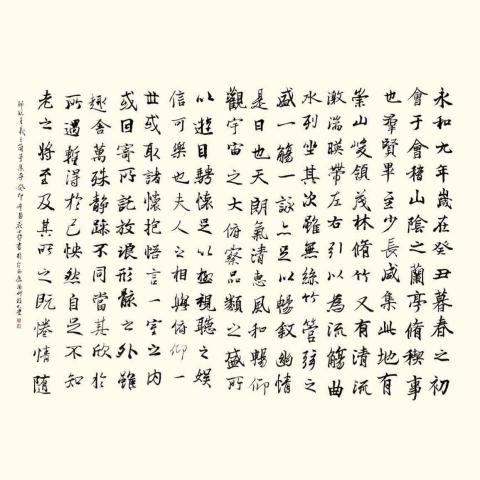 永和九年歲在癸丑暮春之初
會于會稽山陰之蘭亭脩稧事
也羣賢畢至少長咸集此地有
崇山峻領茂林脩竹又有清流
激湍暎帶左右引以為流觴曲
水列坐其次雖無絲竹管弦之
盛一觴一詠亦足以暢敘幽情
是日也天朗氣清惠風和暢仰
觀宇宙之大俯察品類之盛所
以遊目騁懷足以極視聽之娛
信可樂也夫人之相與俯仰一
世或取諸懷抱悟言一室之內
或因寄所託放浪形骸之外雖
趣舍萬殊靜躁不同當其欣於
所遇暫得於己怏然自足不知
老之將至及其所之既惓情隨